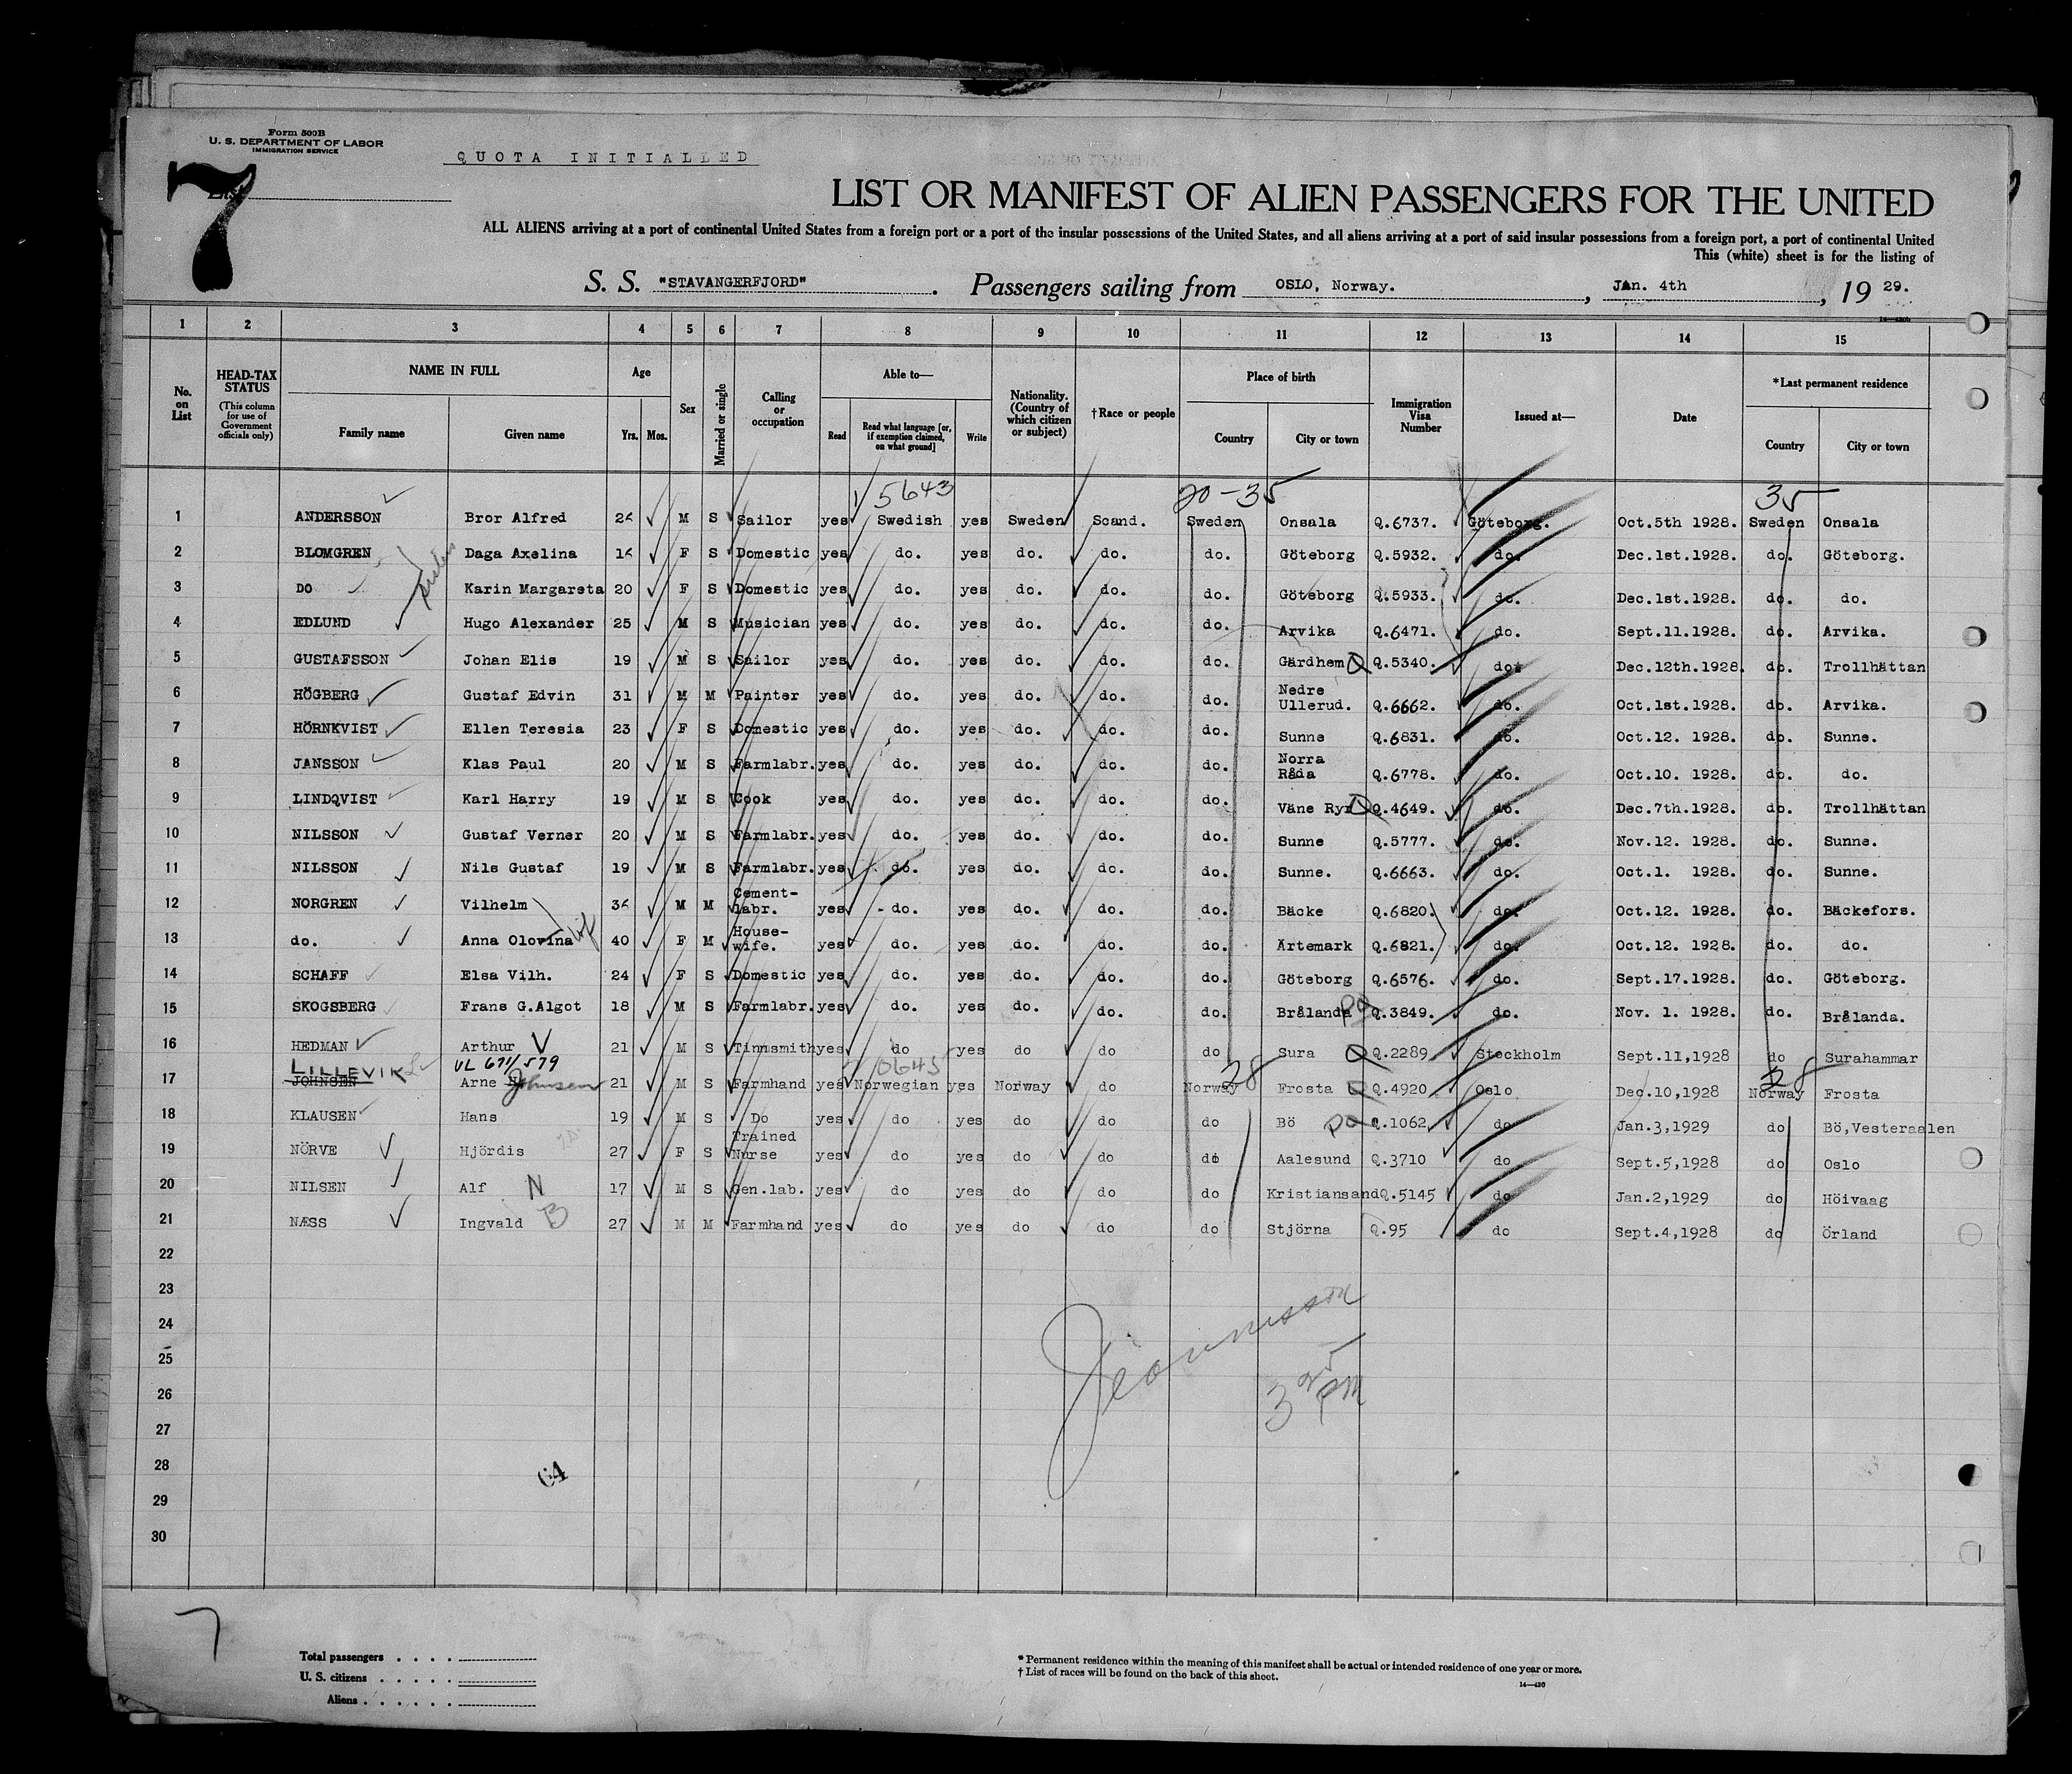 Form 500B
U. S. DEPARTMENT OF LABOR
IMMIGRATION SERVICE
QUOTA INITIALLED
7
LIST OR MANIFEST OF ALIEN PASSENGERS FOR THE UNITED
ALL ALIENS arriving at a port of continental United States from a foreign port or a port of the insular possessions of the United States, and all aliens arriving at a port of said insular possessions from a foreign port, a port of continental United
This (white) sheet is for the listing of
S. S. "STAVANGERFJORD". Passengers sailing from OSLO, Norway., JAn. 4th, 19 29.
1 2 3 4 5 6 7 8 9 10 11 12 13 14 15
No. on List
HEAD-TAX STATUS (This column for use of Government officials only)
NAME IN FULL Family name Given name
Age Yrs. Mos.
Sex
Married or single
Calling or occupation
Able to— Read Read what language [or, if exemption claimed, on what ground] Write
Nationality. (Country of which citizen or subject)
†Race or people
Place of birth Country City or town
Immigration Visa Number
Issued at—
Date
*Last permanent residence Country City or town
5643 20-35 35
1 ANDERSSON Bror Alfred 26 M S Sailor yes Swedish yes Sweden Scand. Sweden Onsala Q.6737. Göteborg. Oct.5th 1928. Sweden Onsala
2 BLOMGREN Daga Axelina 16 F S Domestic yes do. yes do. do. do. Göteborg Q.5932. do. Dec.1st.1928. do. Göteborg.
3 DO Karin Margareta 20 F S Domestic yes do. yes do. do. do. Göteborg Q.5933. do. Dec.1st.1928. do. do.
4 EDLUND Hugo Alexander 25 M S Musician yes do. yes do. do. do. Arvika Q.6471. do. Sept.11.1928. do. Arvika.
5 GUSTAFSSON Johan Elis 19 M S Sailor yes do. yes do. do. do. Gärdhem Q.5340. do. Dec.12th.1928. do. Trollhättan
6 HÖGBERG Gustaf Edvin 31 M M Painter yes do. yes do. do. do. Nedre Ullerud. Q.6662. do. Oct.1st.1928. do. Arvika.
7 HÖRNKVIST Ellen Teresia 23 F S Domestic yes do. yes do. do. do. Sunne Q.6831. do. Oct.12. 1928. do. Sunne.
8 JANSSON Klas Paul 20 M S Farmlabr. yes do. yes do. do. do. Norra Råda Q.6778. do. Oct.10. 1928. do. do.
9 LINDQVIST Karl Harry 19 M S Cook yes do. yes do. do. do. Väne Ryr Q.4649. do. Dec.7th.1928. do. Trollhättan
10 NILSSON Gustaf Verner 20 M S Farmlabr. yes do. yes do. do. do. Sunne Q.5777. do. Nov.12. 1928. do. Sunne.
11 NILSSON Nils Gustaf 19 M S Farmlabr. yes do. yes do. do. do. Sunne. Q.6663. do. Oct.1. 1928. do. Sunne.
12 NORGREN Vilhelm 36 M M Cement-labr. yes do. yes do. do. do. Bäcke Q.6820. do. Oct.12. 1928. do. Bäckefors.
13 do. Anna Olovina 40 F M House-wife. yes do. yes do. do. do. Ärtemark Q.6821. do. Oct.12. 1928. do. do.
14 SCHAFF Elsa Vilh. 24 F S Domestic yes do. yes do. do. do. Göteborg Q.6576. do. Sept.17.1928. do. Göteborg.
15 SKOGSBERG Frans G.Algot 18 M S Farmlabr. yes do. yes do. do. do. Brålanda Q.3849. do. Nov. 1. 1928. do. Brålanda.
16 HEDMAN Arthur 21 M S Tinnsmith yes do yes do do do Sura Q.2289 Stockholm Sept.11,1928 do Surahammar
LILLEVIK VL 671/579 28 28
17 JOHNSEN Arne Johnsen 21 M S Farmhand yes Norwegian yes Norway do Norway Frosta Q.4920 Oslo Dec.10,1928 Norway Frosta
18 KLAUSEN Hans 19 M S Do yes do yes do do do Bö Q.1062 do Jan.3,1929 do Bö,Vesteraalen
19 NÖRVE Hjördis 27 F S Trained Nurse yes do yes do do do Aalesund Q.3710 do Sept.5,1928 do Oslo
20 NILSEN Alf N 17 M S Gen.lab. yes do yes do do do Kristiansand Q.5145 do Jan.2,1929 do Höivaag
21 NÆSS Ingvald B 27 M M Farmhand yes do yes do do do Stjörna Q.95 do Sept.4,1928 do Örland
22
23
24
25
26
27
28
29
30
64
7
Total passengers
U. S. citizens
Aliens
* Permanent residence within the meaning of this manifest shall be actual or intended residence of one year or more.
† List of races will be found on the back of this sheet.
14—420